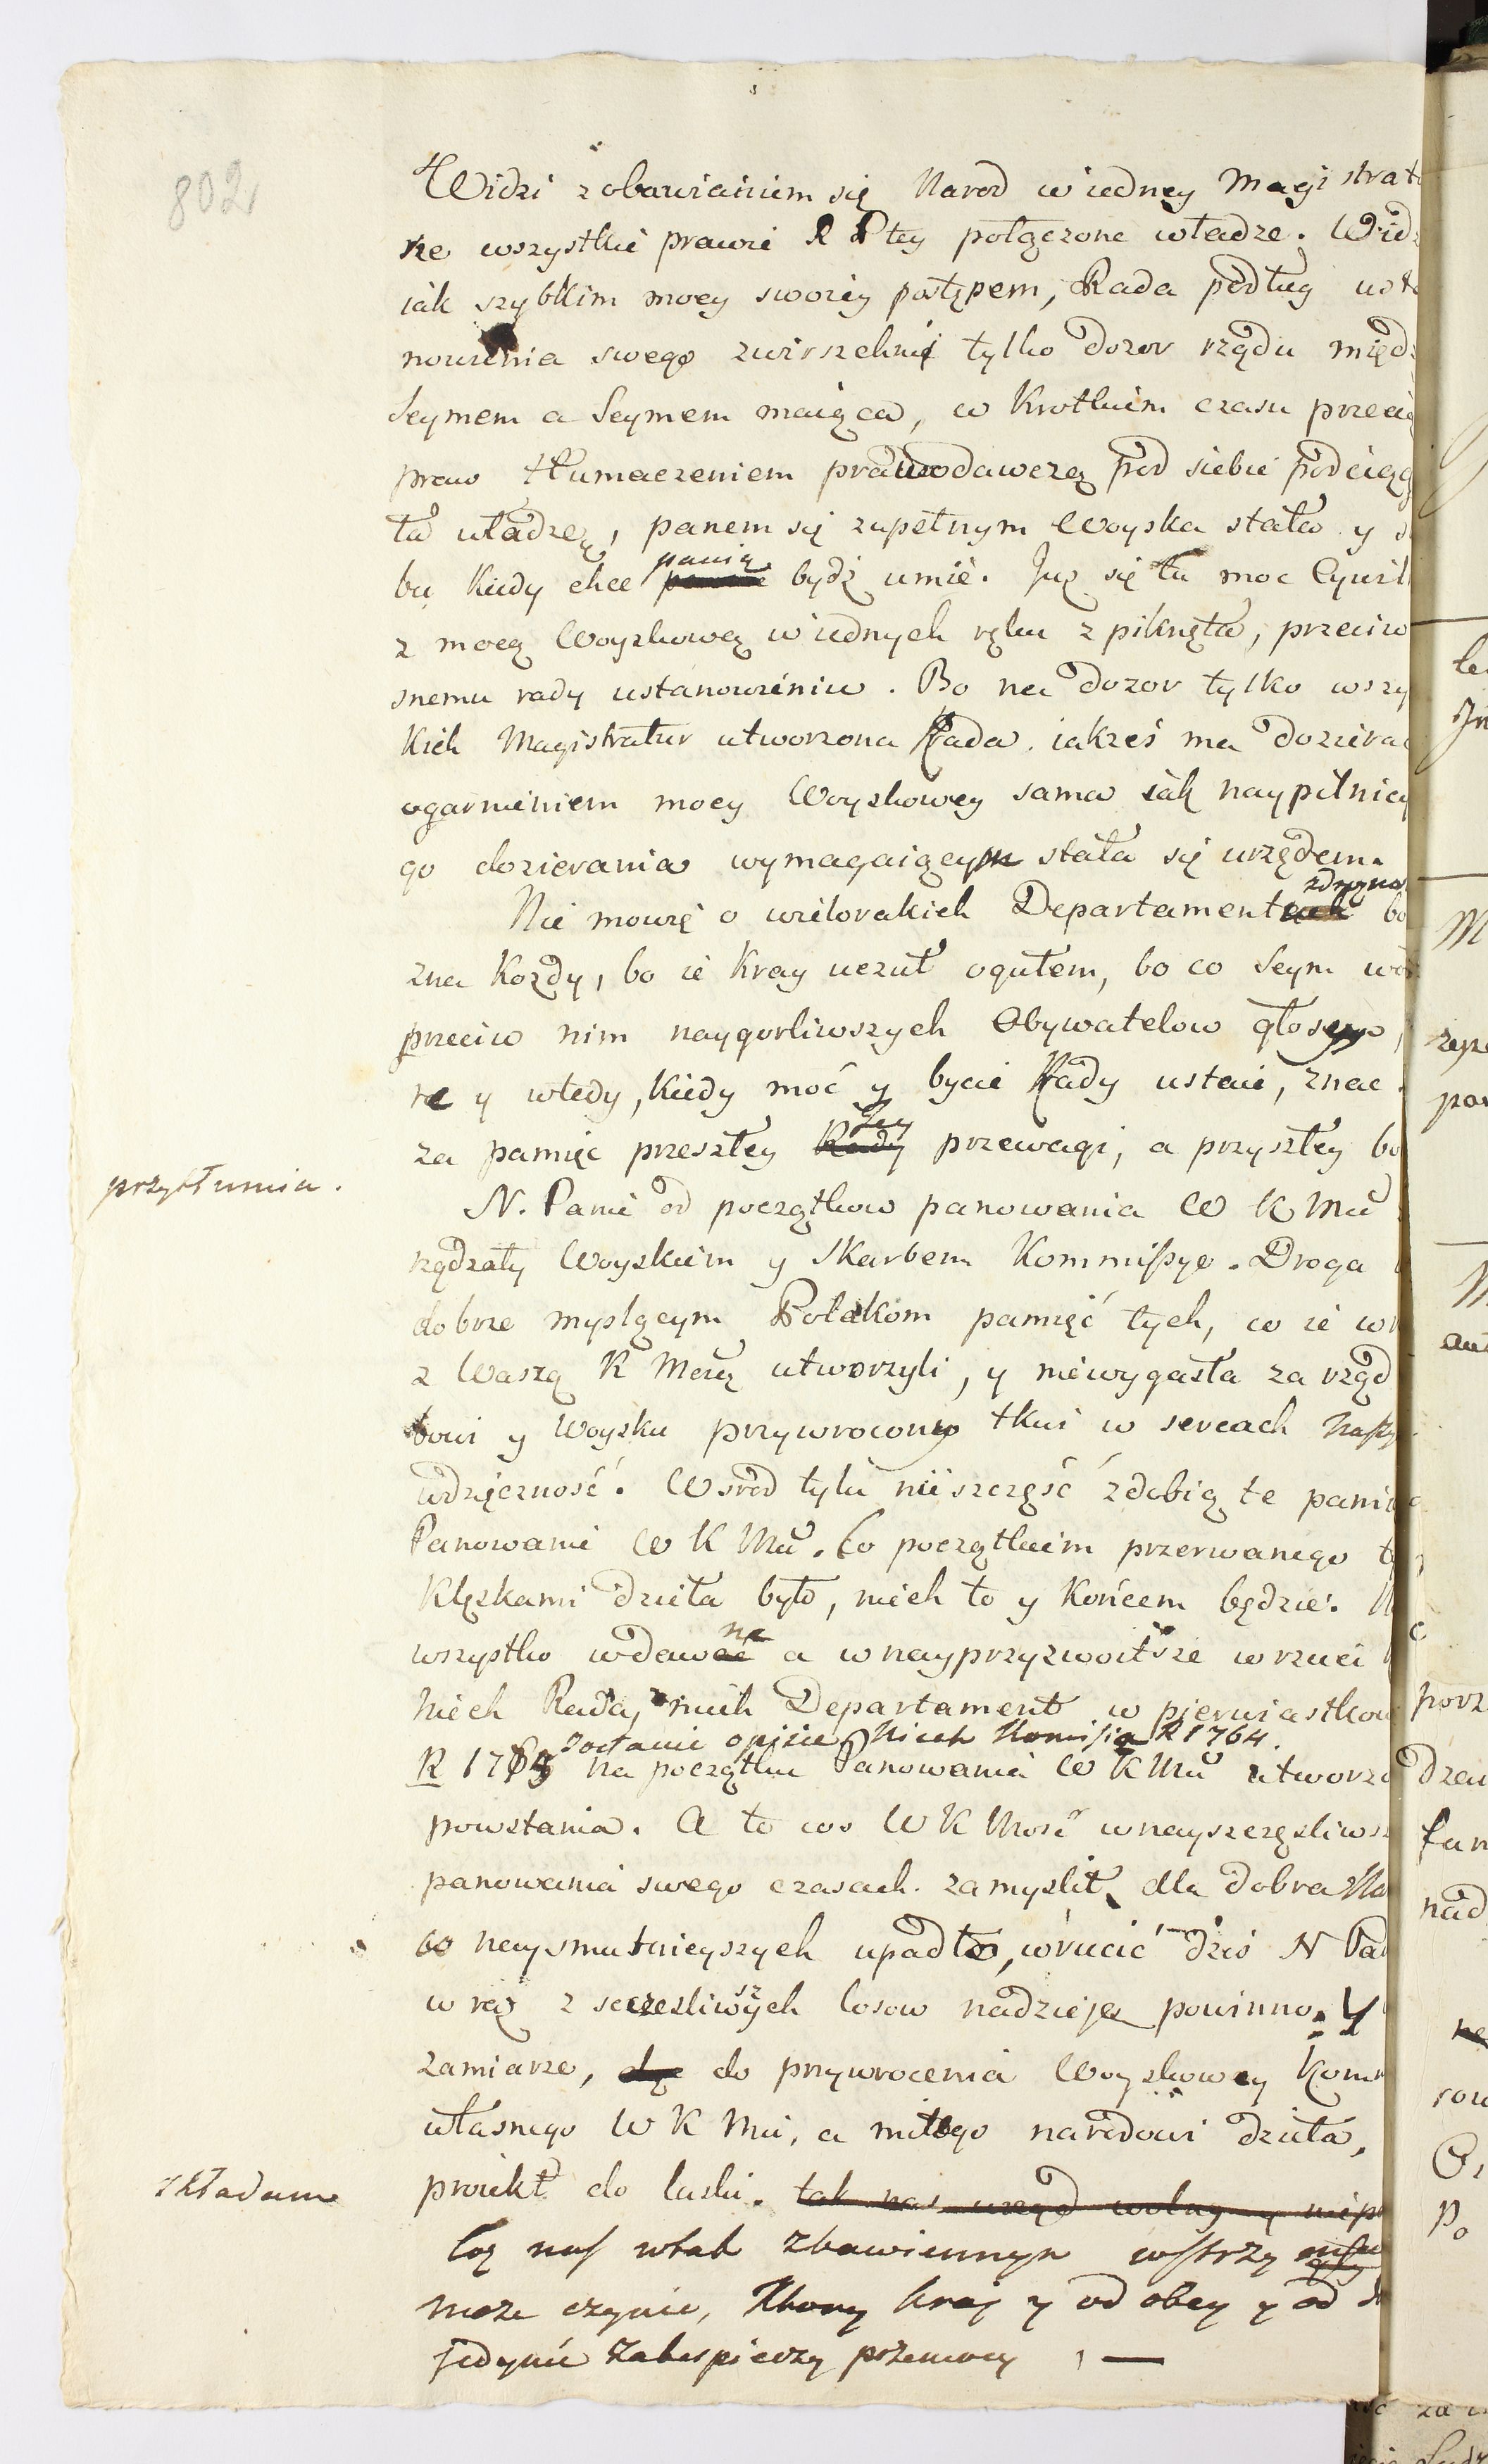 802
Widzi z obawianiem się Narod w iedney Magistrat
rze wszystkie prawie R Ptey połączone władze. Widz
iak szybkim mocy swoiey postępem, Rada podług usta
nowienia swego zwirszchni tylko dozor rządu międz
Seymem a Seymem maiąca, w krotkiem czasu przecią
praw tłumaczeniem prawodawczą pod siebie podciąg
ła władzę, panem się zupełnym Woyska stała y s
bu kiedy chce panią bydź umie. Juz się tu moc Cywil
z mocą Woyskową w iednych ręku zpiknęła, przeciw
snemu rady ustanowieniu. Bo na dozor tylko wszy
kich Magistratur utworzona Rada. iakześ ma dozierac
ogarnieniem mocy Woyskowey sama iak naypilniey
go dozierania wymagaiącym stała się urzędem.
Nie mowię o wielorakich Departament zdrozno bo
zna kozdy, bo ie kray uczuł ogułem, bo co Seym
przeciw nim naygorliwszych Obywatelow głosy,
re y wtedy, kiedy moc y bycie Rady ustaie, znac
za pamięc przeszłey Jey przewagi, a przyszłey bo
przytłumia.
N. Panie od początkow panowania W K Mci
rządzały Woyskiem y Skarbem Kommissye. Droga
dobrze myslącym Polakom pamięć tych, co ie w
z Waszą K Mcią utworzyli, y niewygasła za rząd
bowi y Woysku przywrocony tkwi w sercach naszy
wdzięczność. Wsrod tylu nieszczęść zdobią te pami
Panowanie W K Mci. Co początkiem przerwanego
klęskami dzieła było, niech to y końcem będzie.
wszystko wdawne a w nayprzyzwoitsze wrzuci
Niech Rada, niech Departament w pierwiastkow
zostanie opisie, Niech Komissia R 1764.
R 1764 na początku Panowania W K Mci utworzo
powstania. A to co W K Mość w nayszczęsliwsz
panowania swego czasach. zamyslił dla dobra Na
co naysmutnieyszych upadło, wrucić dziś N Pa
w raz z sczesliwszych losow nadzieją powinno. Y
zamiarze, do przywrocenia Woyskowey Komm
własnego W K Mci, a miłego narodowi dzieła,
składam
proiekt do laski. tak nas urząd wolny y niep
Coz nas wtak zbawiennym wstrzy
moze czynie, Ktory kray y od obcy y od d
jedynie zabespieczy przemocy, —